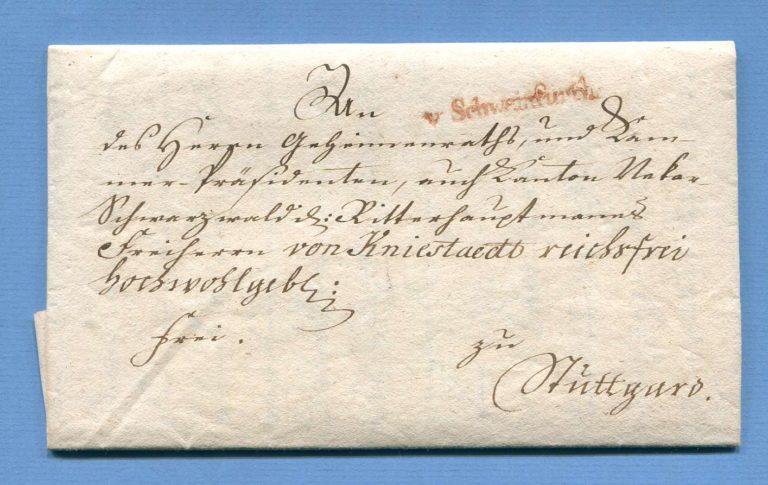 v Schweinfurth.
An
des Herrn Geheimenraths, und Kam-
mer-Präsidenten, auch Kanton Nekar-
Schwarzwald Ritterhauptmanns
Freiherrn von Kniestaedt reichsfrei
hochwohlgebl:
frei.
zu
Stuttgard.